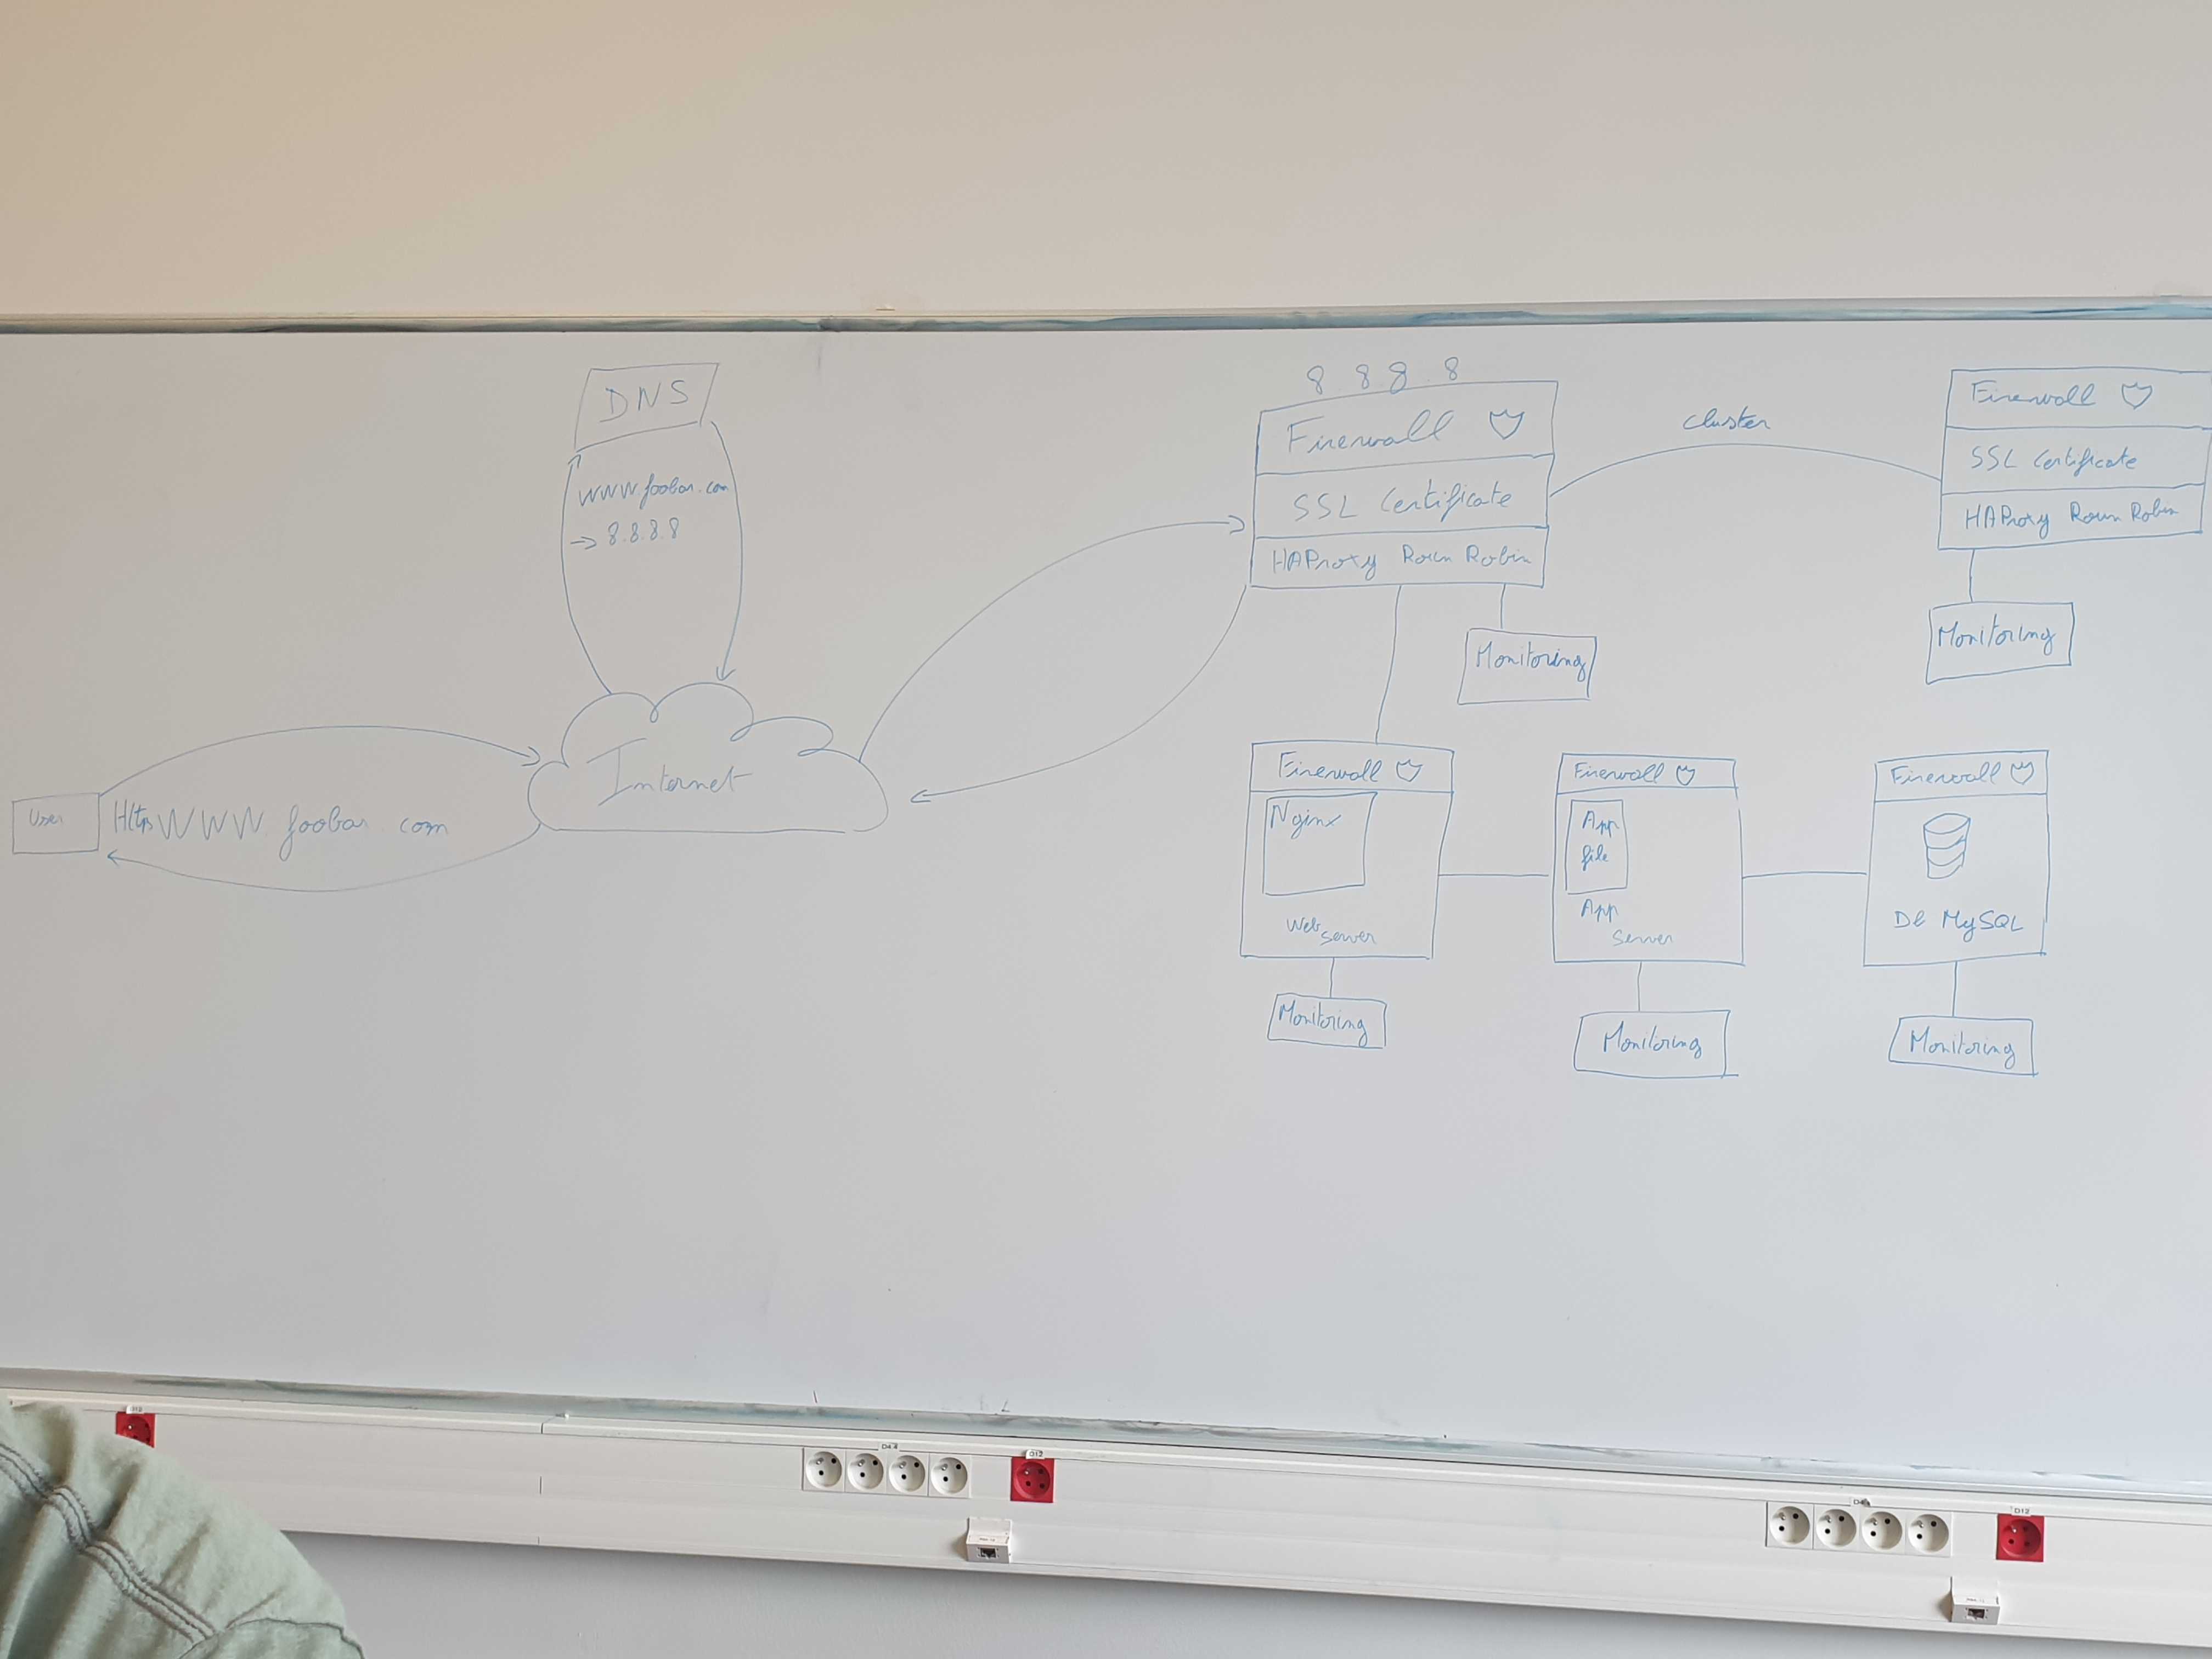 DNS
www.foobar.com
→ 8.8.8.8
User
Https WWW. foobar. com
Internet
8 8 8 . 8
Firewall
SSL Certificate
HAProxy Roun Robin
Monitoring
cluster
Firewall
SSL Certificate
HAProxy Roun Robin
Monitoring
Firewall
Nginx
Web
Server
Monitoring
Firewall
App
file
App
Server
Monitoring
Firewall
DB MySQL
Monitoring
D12
D12